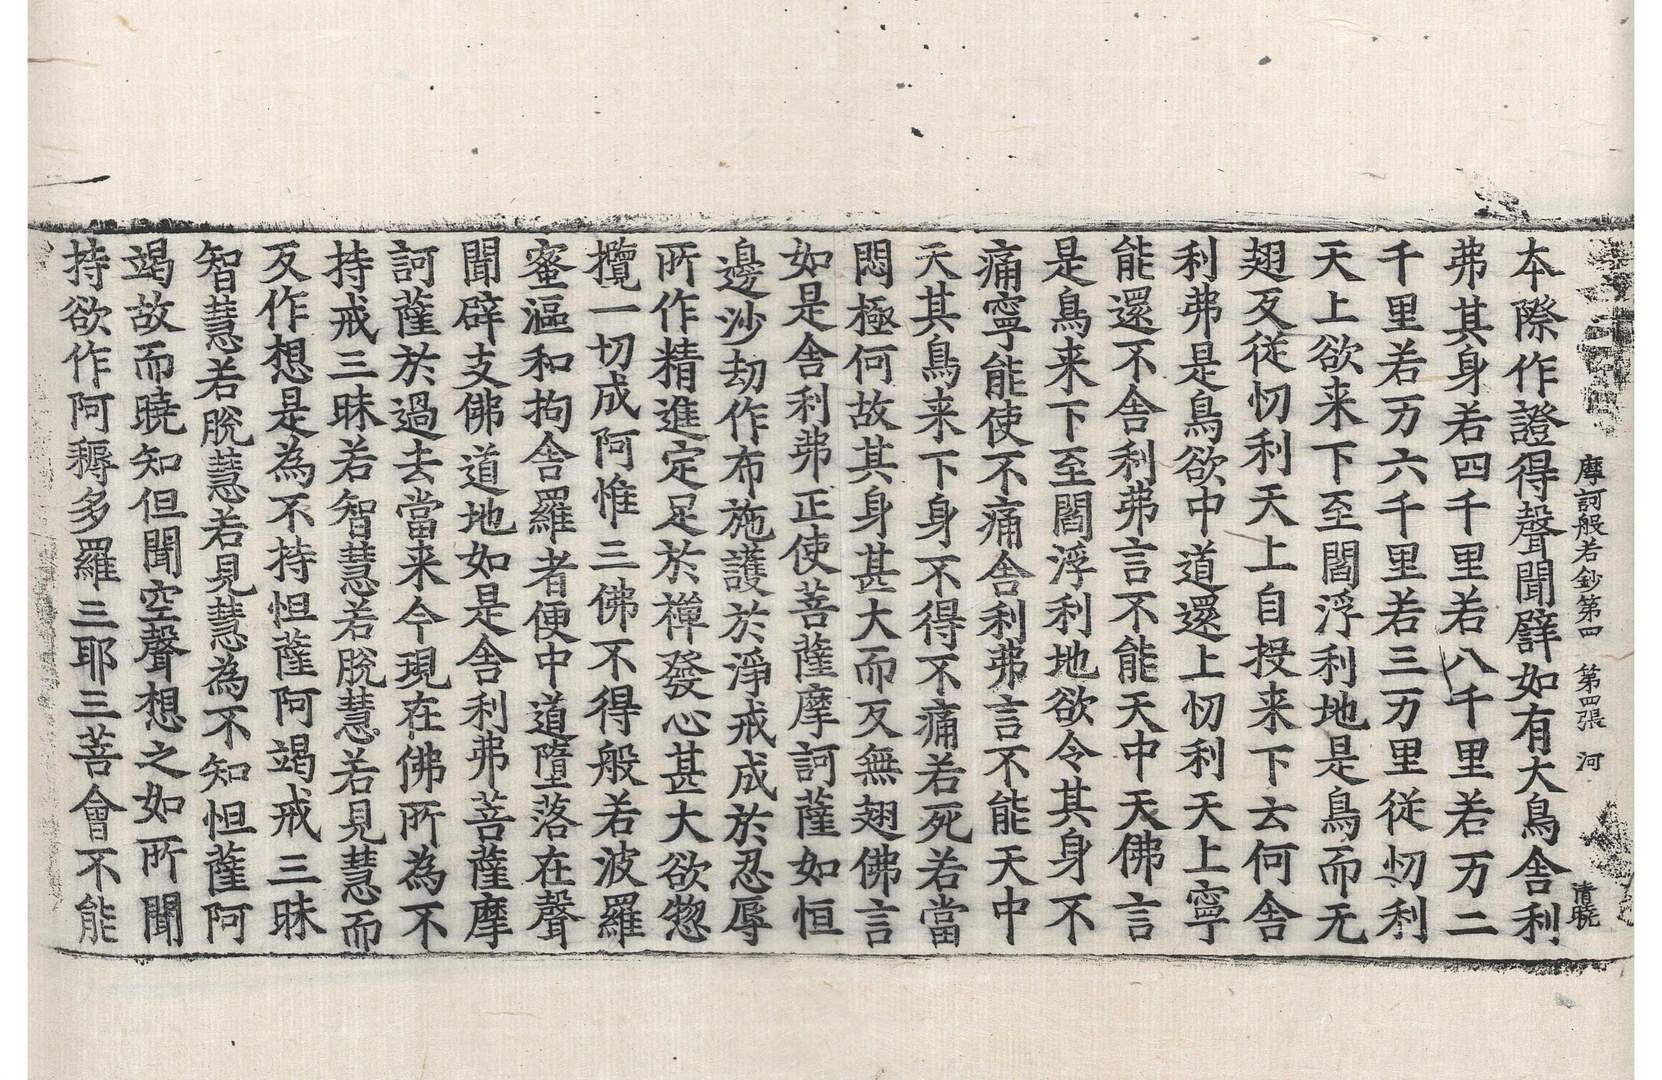 摩訶般若鈔第四 第四張 河
本際作證得聲聞譬如有大鳥舍利
弗其身若四千里若八千里若万二
千里若万六千里若三万里從忉利
天上欲来下至閻浮利地是鳥而无
翅反從忉利天上自投来下去何舍
利弗是鳥欲中道還上忉利天上寧
能還不舍利弗言不能天中天佛言
是鳥来下至閻浮利地欲令其身不
痛寧能使不痛舍利弗言不能天中
天其鳥来下身不得不痛若死若當
悶極何故其身甚大而反無翅佛言
如是舍利弗正使菩薩摩訶薩如恒
邊沙劫作布施護於淨戒成於忍辱
所作精進定足於禪發心甚大欲惣
攬一切成阿惟三佛不得般若波羅
蜜漚和拘舍羅者便中道墮落在聲
聞辟支佛道地如是舍利弗菩薩摩
訶薩於過去當来今現在佛所為不
持戒三昧若智慧若脫慧若見慧而
反作想是為不持怛薩阿竭戒三昧
智慧若脫慧若見慧為不知怛薩阿
竭故而曉知但聞空聲想之如所聞
持欲作阿耨多羅三耶三菩會不能